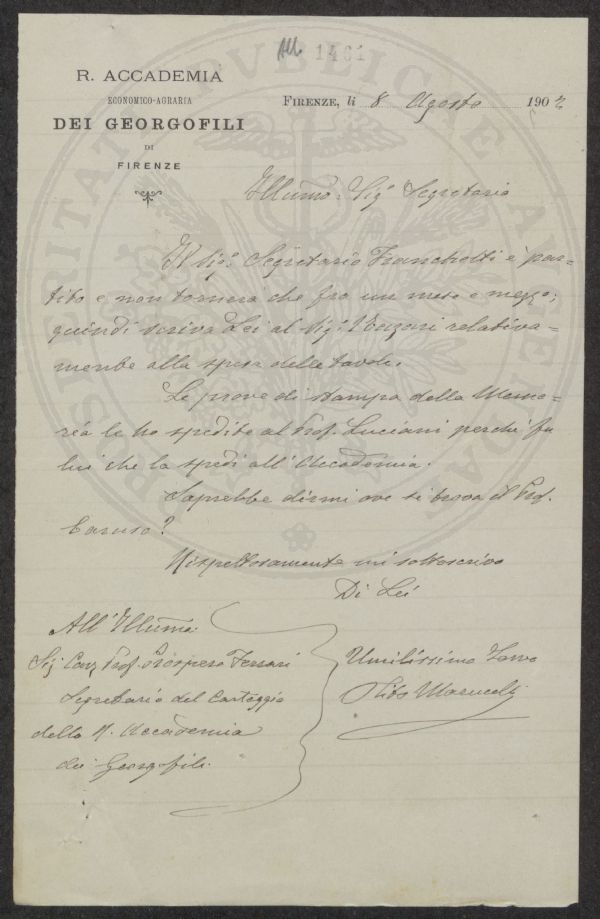 All. 1461
R. ACCADEMIA
ECONOMICO-AGRARIA
DEI GEORGOFILI
DI
FIRENZE
FIRENZE, li 8 Agosto 1902
Illumo. Sigr Segretario
Il Sigr. Segretario Franchetti è par=
tito e non tornerà che fra un mese e mezzo;
quindi scriva Lei al Sigr. relativa=
mente alla spesa delle tavole.
Le prove di stampa della Memo=
ria le ho spedite al Prof. Luciani perchè fu
lui che la spedì all'Accademia.
Saprebbe dirmi ove si trova il Prof.
Caruso?
Rispettosamente mi sottoscrivo
Di Lei
All'Illumo.
Sig. Cav. Prof. Prospero Ferrari
Segretario del Carteggio
della R. Accademia
dei Georgofili.
Umilissimo Servo
Tito Marucelli
PROSPERITATI PVBLICAE AVGENDAE